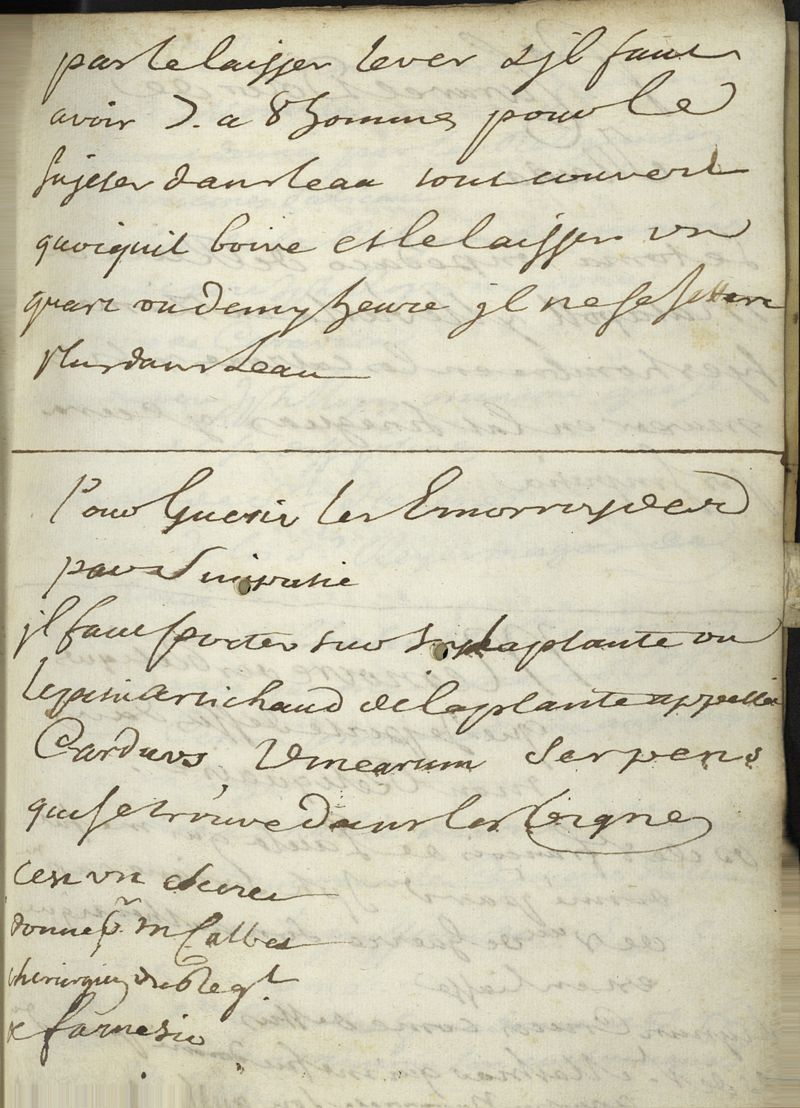 pas le laisser lever & jl faut
avoir 7. a 8 hommes pour le
sujeter dans leau tout couvert
quoiquil boive et le laisser un
quart ou demy heure jl ne se jettera
plus dans leau
Pour Guerir les Emorroydes
par Simpatie
jl faut porter sur soy la plante ou
le petit artichaud de la plante appellée
Carduus Vinearum Serpens
qui se trouve dans les Vignes
cest un secret
donne pr. M Calbet
chirurgien du Regt
de farnesio